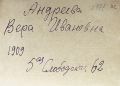 Андреева
Вера Ивановна
1909
5ая Слободская 62